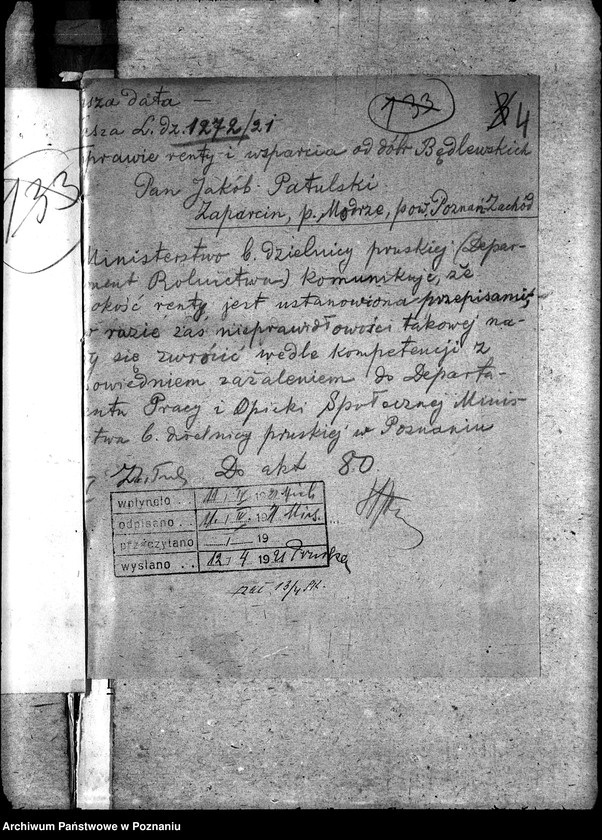 133
4
133
sza data —
sza L. dz. 1272/21
prawie renty i wsparcia od dóbr Będlewskich
Pan Jakób Patulski
Zaparcin, p. Modrze, pow. Poznań Zachód
Ministerstwo b. dzielnicy pruskiej (Depar-
ment Rolnictwa) komunikuje, że
okość renty, jest ustanowiona przepisami,
razie zaś nieprawidłowości takowej na-
y się zwrócić wedle kompetencji z
owiedniem zażaleniem do Departa-
entu Pracy i Opieki Społecznej Minis-
twa b. dzielnicy pruskiej w Poznaniu
Do akt 80.
wpłynęło . . 11 / IV 1921
odpisano . . 11. / IV. 1921
przeczytano / 19
wysłano . . 12 / 4 1921
13/4
Archiwum Państwowe w Poznaniu